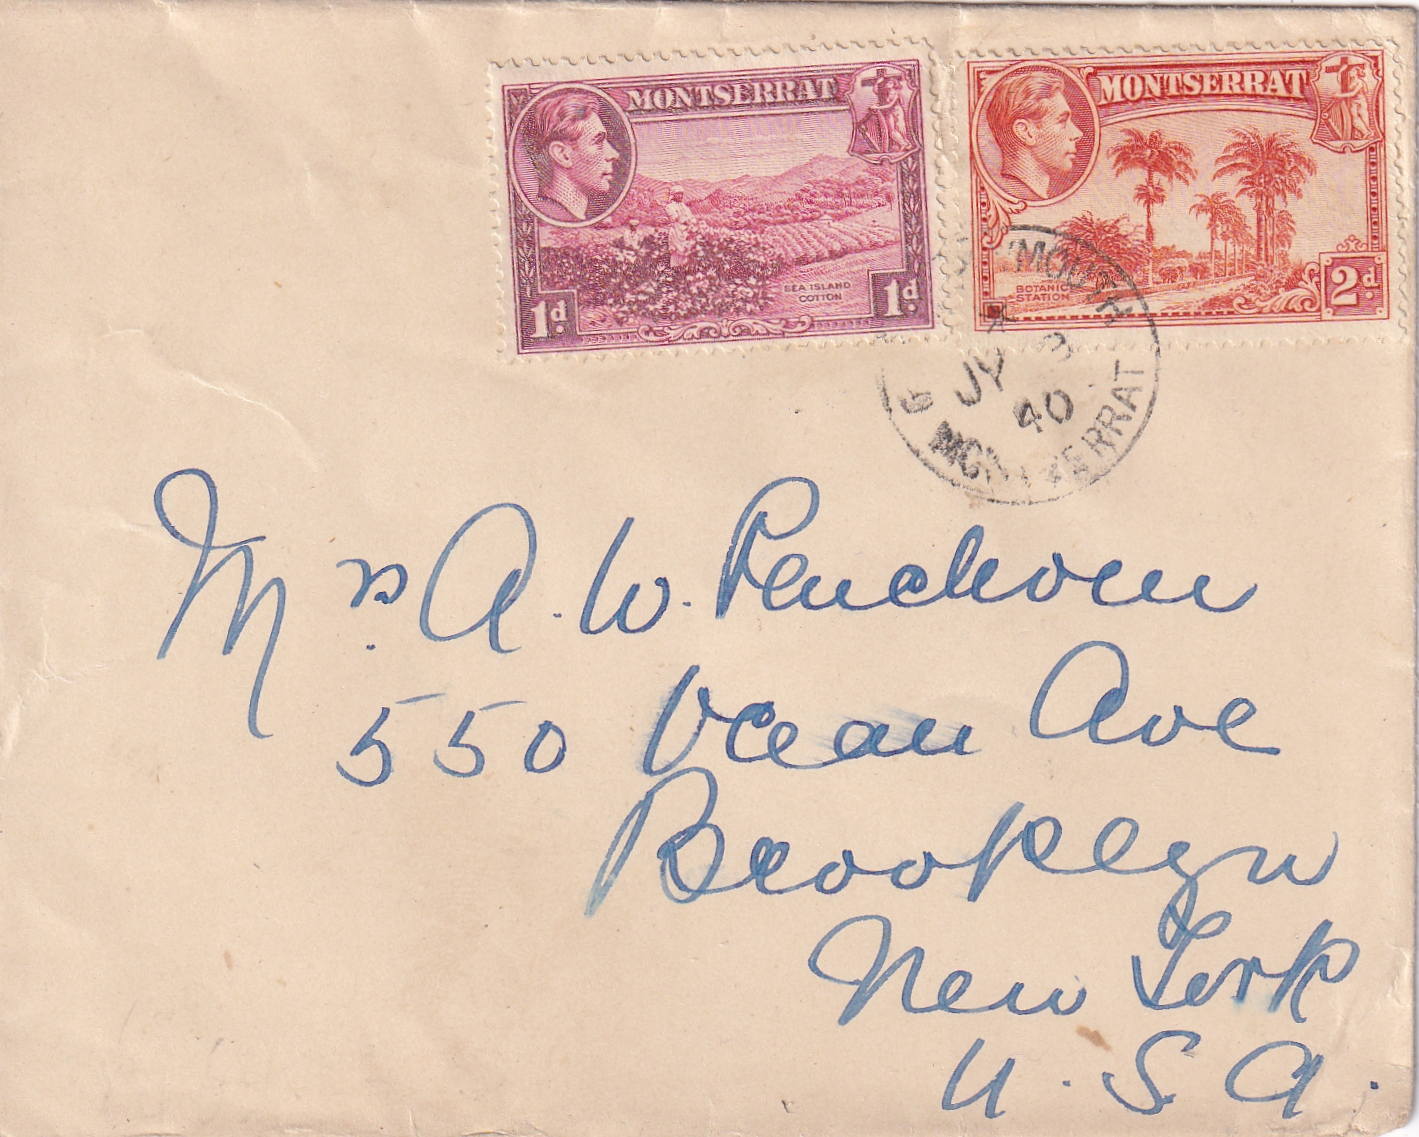 MONTSERRAT
SEA ISLAND
COTTON
1d
1d
MONTSERRAT
BOTANIC
STATION
2d
MOUTH
JY
40
MONTSERRAT
Mrs A. W.
550 Ocean Ave
Brooklyn
New York
U. S. A.